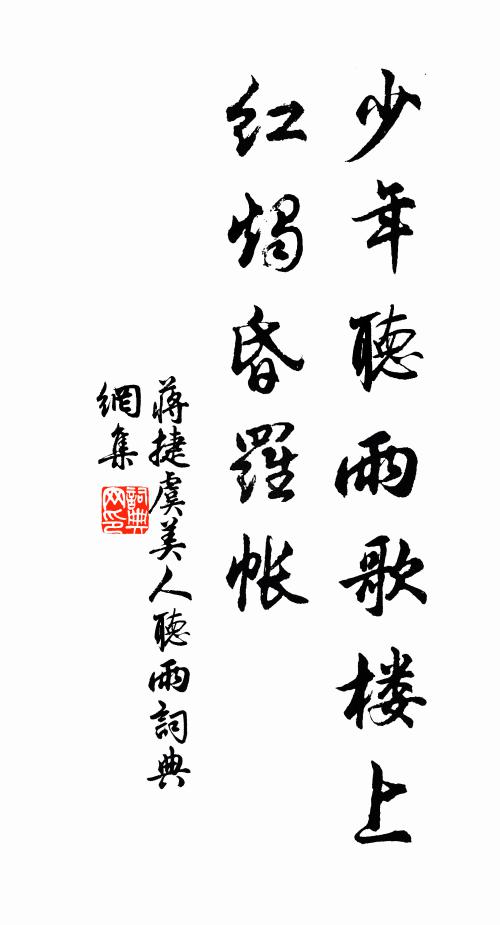 少年聽雨歌楼上
紅燭昏羅帳
蔣捷虞美人聽雨詞典
網集
詞典網印